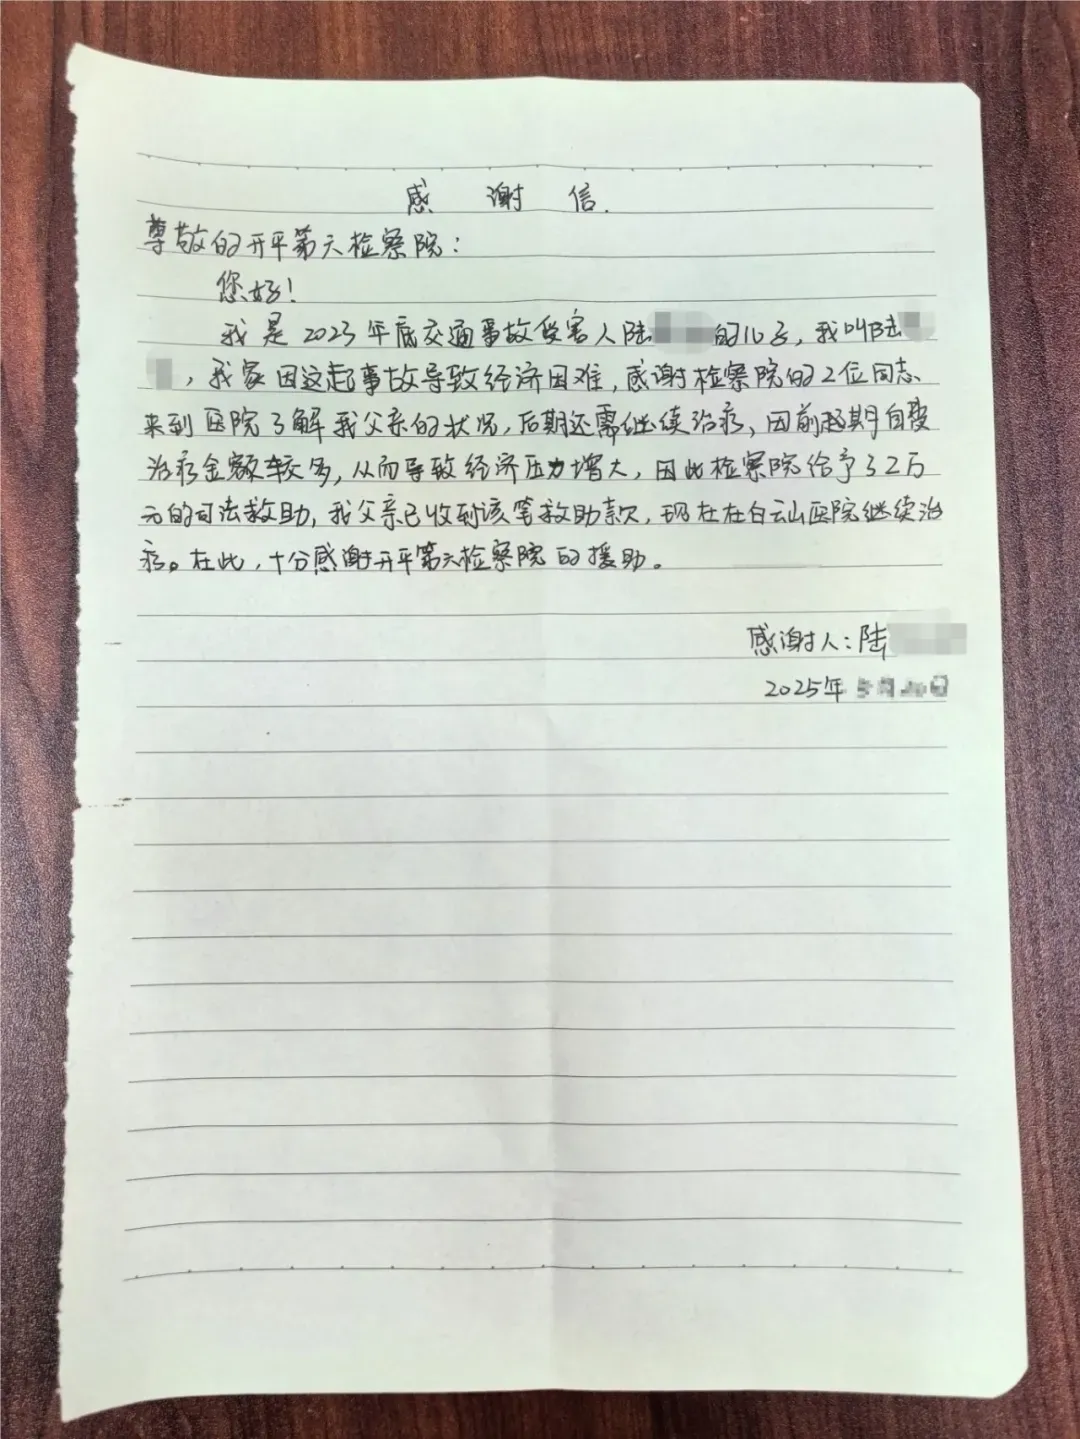 感谢信.
尊敬的开平第六检察院:
您好!
我是2023年底交通事故受害人陆的儿子,我叫陆
,我家因这起事故导致经济困难,感谢检察院的2位同志
来到医院了解我父亲的状况,后期还需继续治疗,因前期自费
治疗金额较多,从而导致经济压力增大,因此检察院给予了2万
元的司法救助,我父亲已收到该笔救助款,现在在白云山医院继续治
疗。在此,十分感谢开平第六检察院的援助。
感谢人:陆
2025年